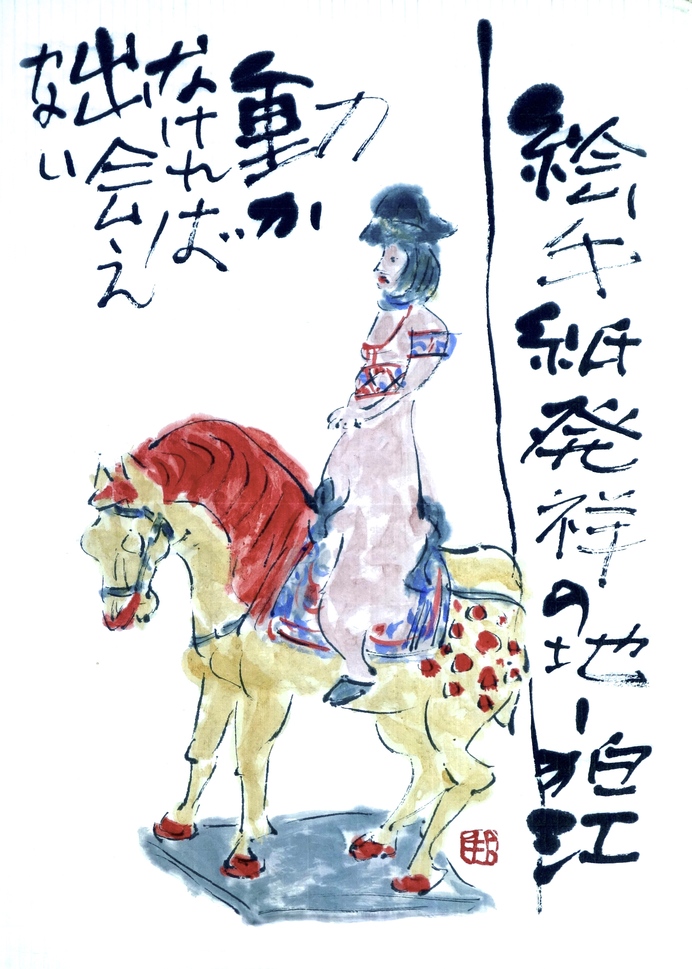 絵手紙発祥の地ー狛江
動か
なければ
出会え
ない